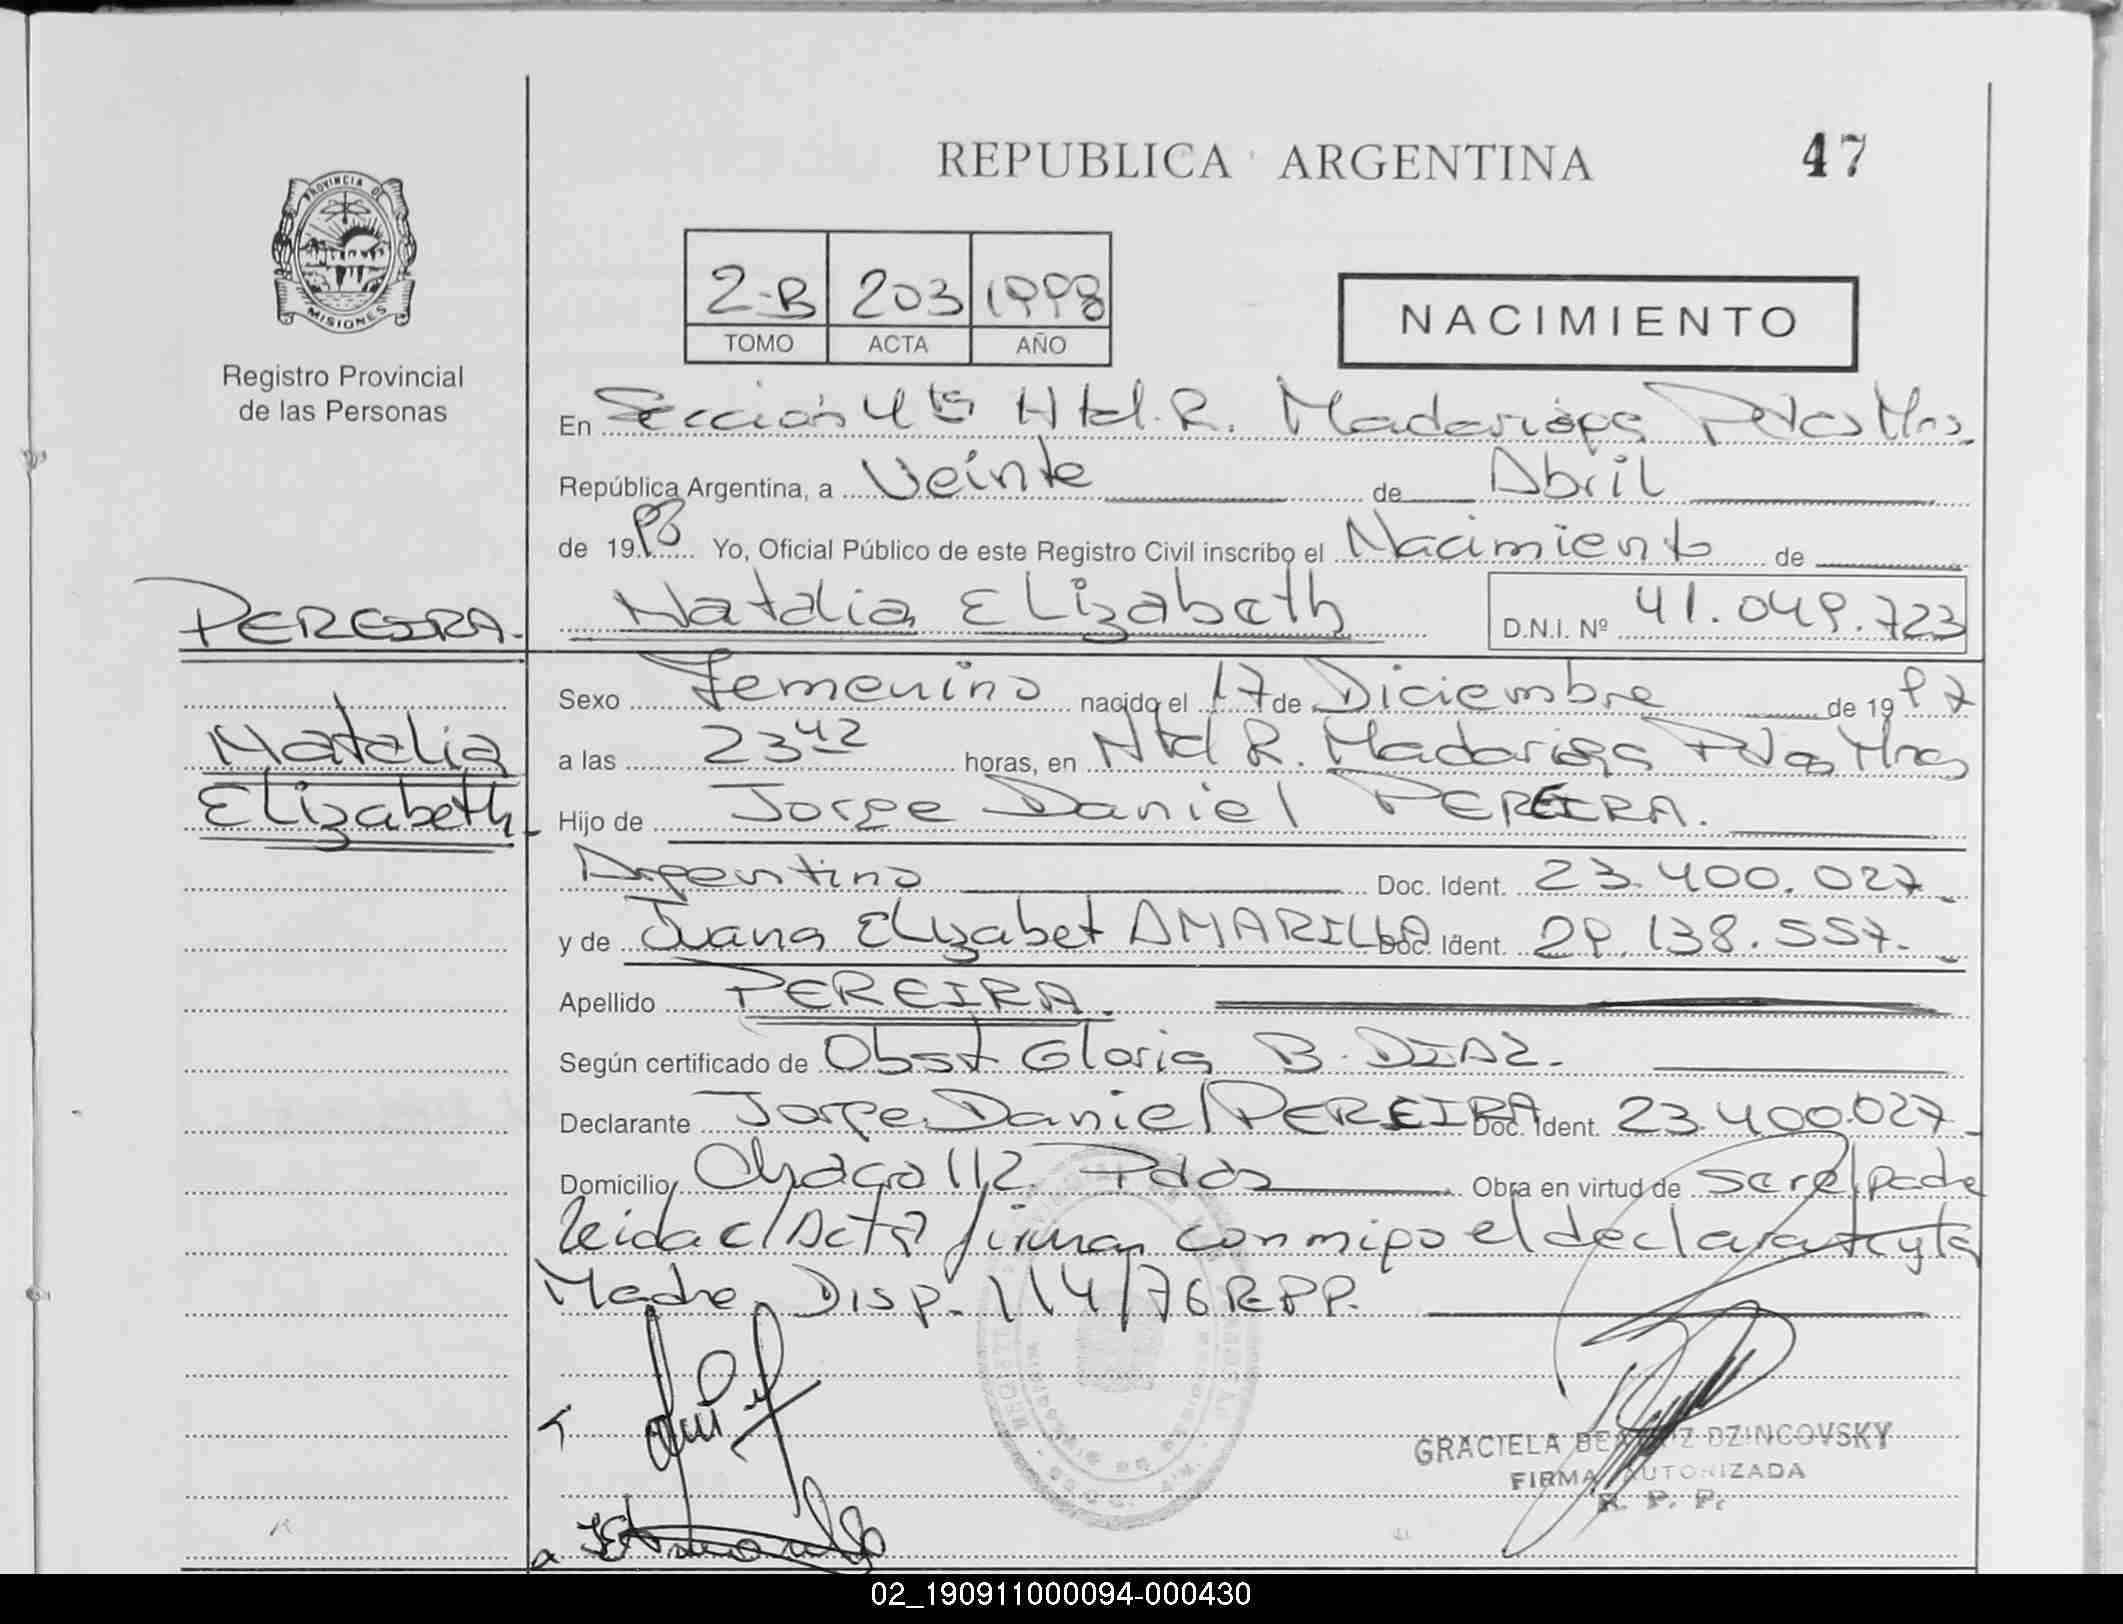 REPUBLICA ARGENTINA
47
PROVINCIA DE
MISIONES
Registro Provincial
de las Personas
2-B 203 1998
TOMO ACTA AÑO
NACIMIENTO
En Sección 4ta Htal. R. Madariaga Pdas Mnes.
República Argentina, a Veinte de Abril
de 1998 Yo, Oficial Público de este Registro Civil inscribo el Nacimiento de
PEREIRA.
Natalia Elizabeth
D.N.I. Nº 41.049.723
Natalia
Elizabeth
Sexo Femenino nacido el 17 de Diciembre de 1997
a las 23 42 horas, en Htal R. Madariaga Pdas Mnes
Hijo de Jorge Daniel PEREIRA.
Argentino Doc. Ident. 23.400.027
y de Juana Elizabet AMARILLA Doc. Ident. 29.138.557.
Apellido PEREIRA.
Según certificado de Obst Gloria B. DIAZ.
Declarante Jorge Daniel PEREIRA Doc. Ident. 23.400.027
Domicilio Chacra 112 Pdas Obra en virtud de ser el padre
leida el Acta firman conmigo el declarante y la
Madre Disp. 114/76 R.P.P.
GRACIELA BEATRIZ DZINCOVSKY
FIRMA AUTORIZADA
R. P. P.
02_190911000094-000430